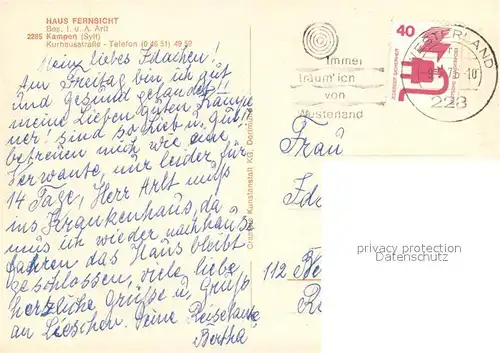 HAUS FERNSICHT
Bes. I. u. A. Arlt
2285 Kampen (Sylt)
Kurhausstraße - Telefon (0 46 51) 49 59
Mein liebes Idachen!
Am Freitag bin ich gut
und gesund gelandet
meine Lieben guten Kampe
ner! sind so lieb u. gut!
betreuen mich wie eine
Verwante, nur leider für
14 Tage, Herr Arlt muß
ins Krankenhaus, da
muß ich wieder nachhause
fahren das Haus bleibt
geschlossen, viele liebe
herzliche Grüße u. Gruß
an Lieschen. Deine Reisetante
Bertha
Immer
träum' ich
von
Westerland
WESTERLAND
75-10
228
40
Frau
Ida
112
privacy protection
Datenschutz